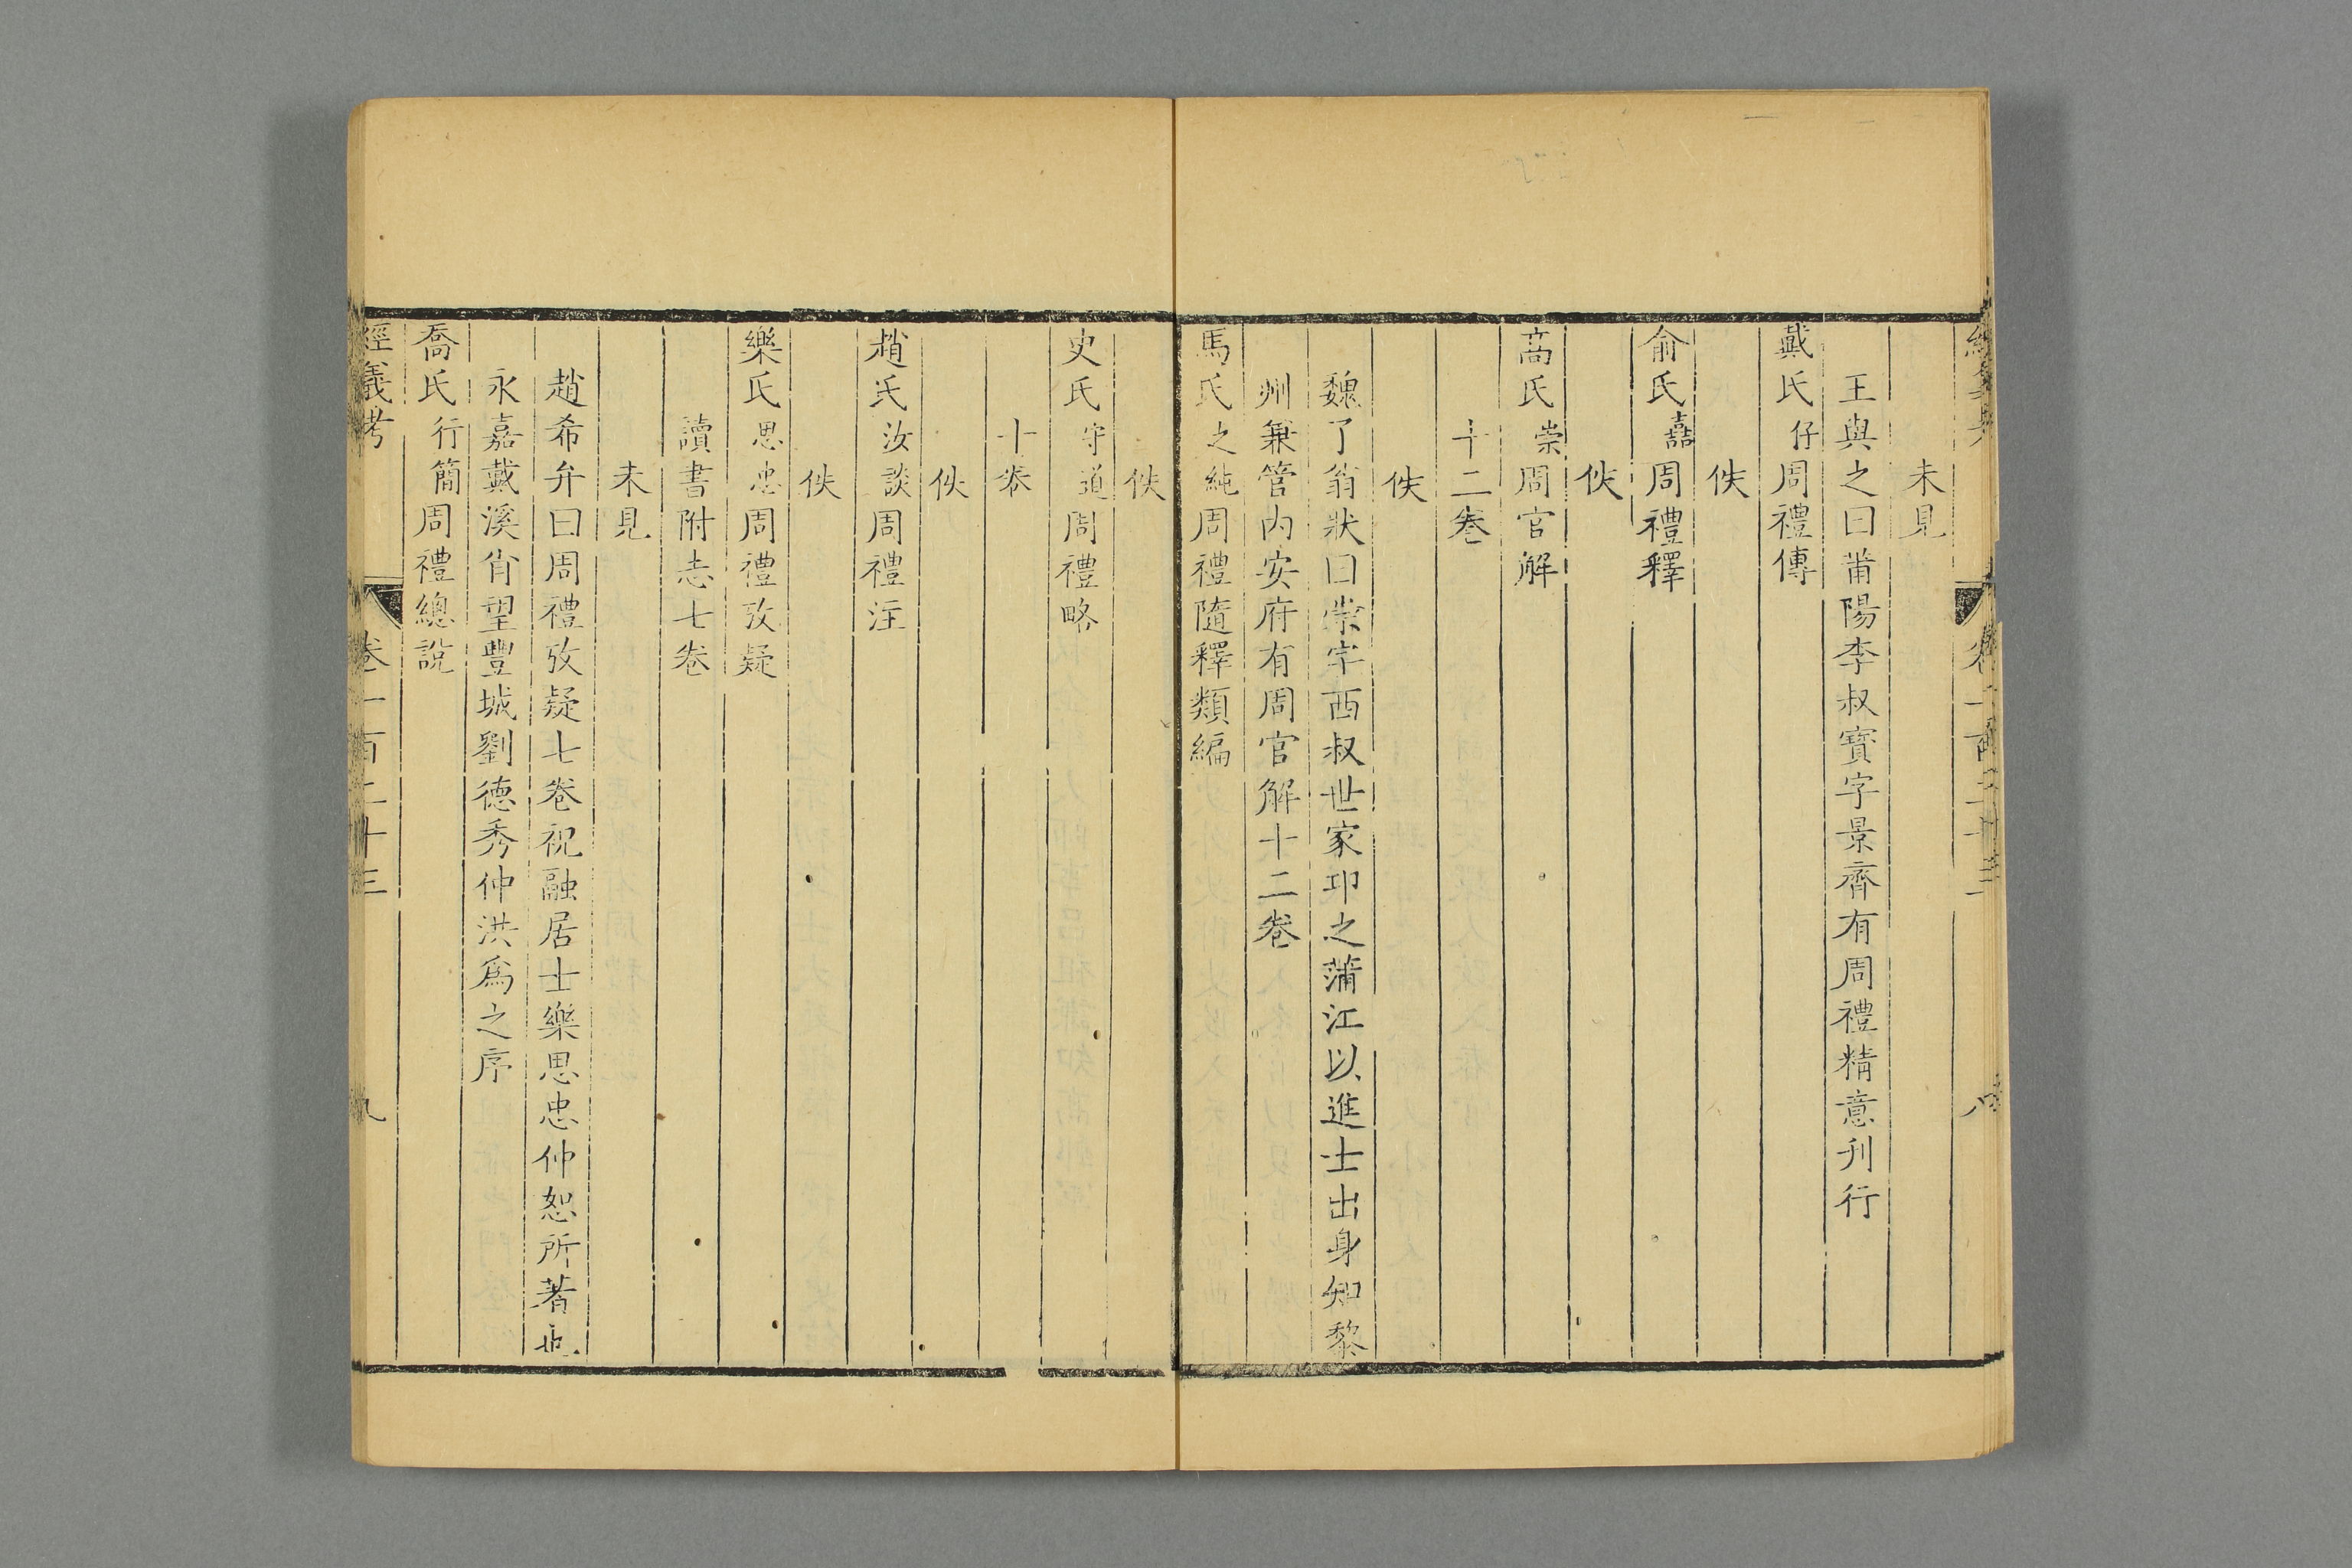 未見
王與之曰莆陽李叔寶字景齊有周禮精意刋行
戴氏仔周禮傳
佚
俞氏嚞周禮釋
佚
高氏崇周官解
十二卷
佚
魏了翁狀曰崇字西叔世家邛之蒲江以進士出身知黎
州兼管內安府有周官解十二卷
馬氏之純周禮隨釋類編
佚
史氏守道周禮略
十卷
佚
趙氏汝談周禮注
佚
樂氏思忠周禮攷疑
讀書附志七卷
未見
趙希弁曰周禮攷疑七卷祝融居士樂思忠仲恕所著也
永嘉戴溪肖望豐城劉德秀仲洪爲之序
喬氏行簡周禮總說
經義考 卷一百二十三 九